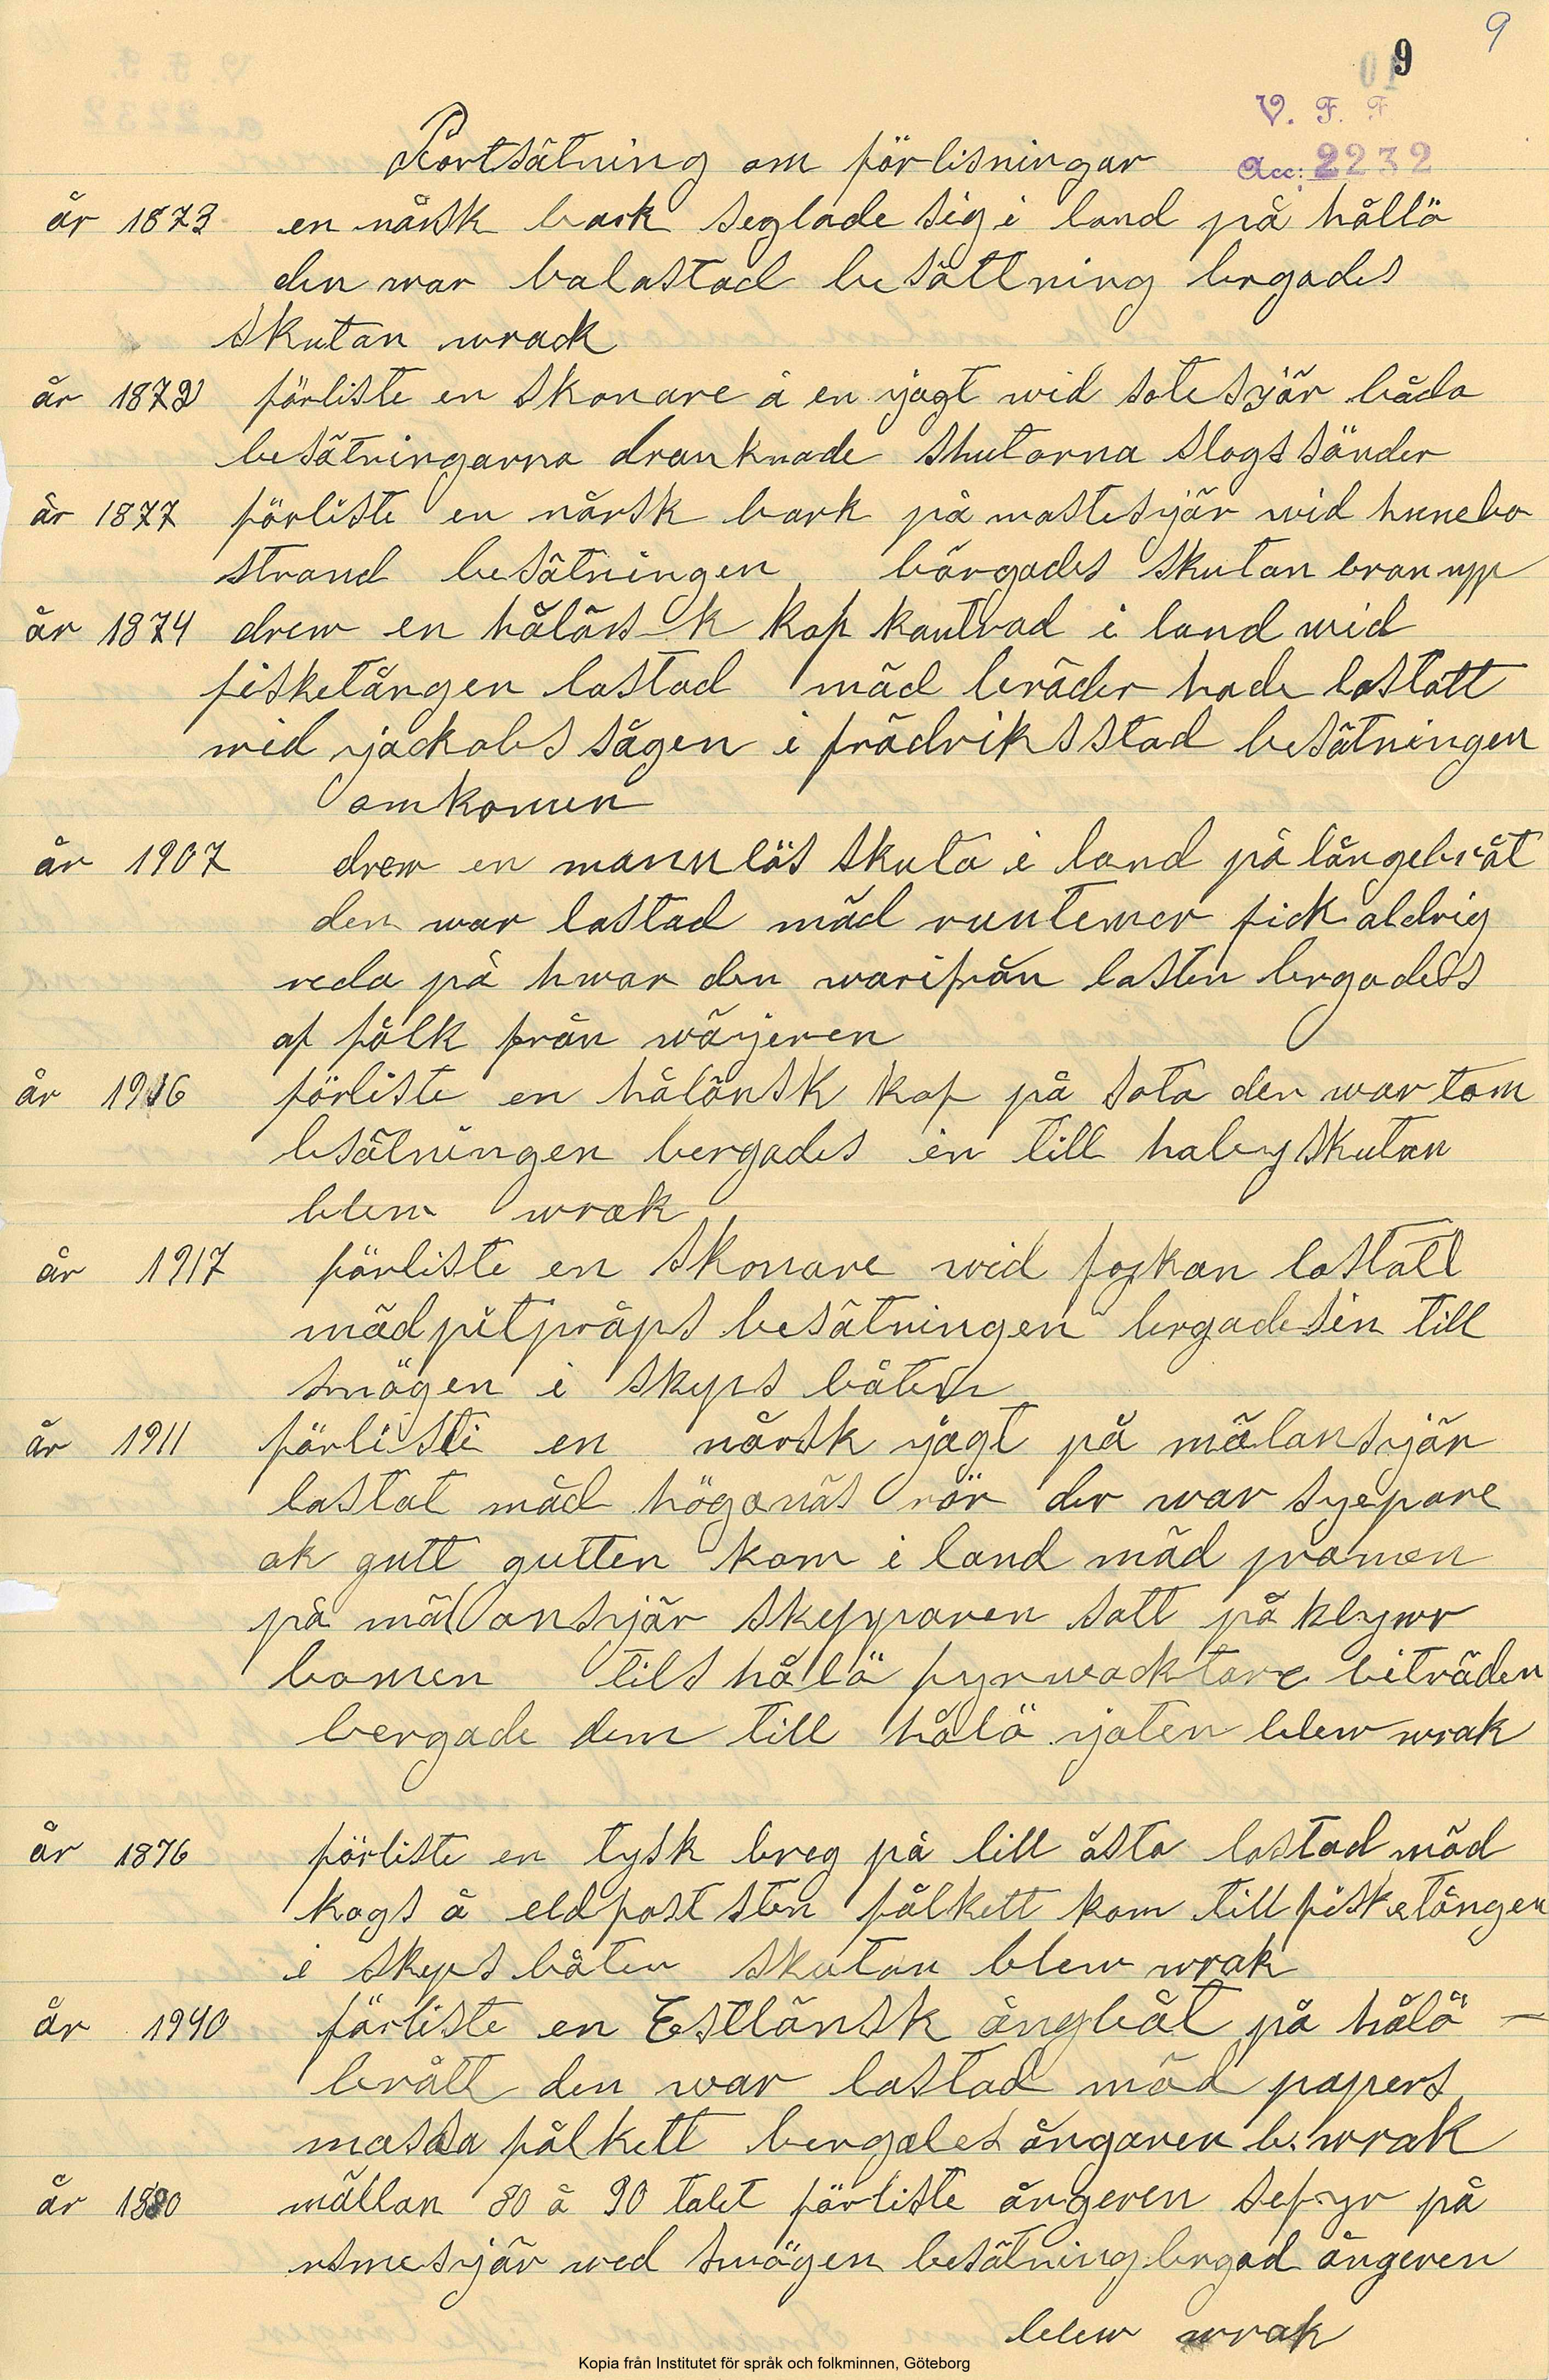 9
9
V. F. F
Acc: 2232
Fortsätning om förlisningar
år 1873 en nårsk bark seglade sig i land på hållö
den war balastad besättning bergades
skutan wrack
år 1872 förliste en skonare å en jagt wid sotesjär båda
besätningarna drunknade skutorna slogs sönder
år 1877 förliste en nårsk bark på mastesjär wid hunebo
strand besätningen bärgades skutan bran upp
år 1874 drew en hålänsk kof kantrad i land wid
fisketången lastad mäd bräder hade lastatt
wid jackobs sågen i frädriksstad besätningen
omkomen
år 1907 drew en mannlös skuta i land på långebråt
den war lastad mäd runtemer fick aldrig
reda på hwar den warifrån lasten bergades
af fålk från wäjeren
år 1916 förliste en hålänsk kof på sota den war tom
besätningen bergades in till haby skutan
blew wrak
år 1917 förliste en skonare wid fojkan lastatt
mäd pitpråps besätningen bergades in till
smögen i skeps båten
år 1911 förliste en nårsk jagt på mälansjär
lastat mäd höganäs rör der war syepare
ok gutt gutten kom i land mäd pramen
på mälansjär skepparen satt på klywr
bomen tils hålö fyrwacktare biträden
bergade dem till hålö jaten blew wrak
år 1876 förliste en tysk breg på lill åsta lastad mäd
kogs å eldfast sten fålkett kom till fisketången
i skeps båten skutan blew wrak
år 1940 förliste en Estlänsk ångbåt på hålö -
brått den war lastad mäd papers
massa fålkett bergades ångaren b. wrak
år 1880 mällan 80 å 90 talet förliste ångeren sefyr på
 wed smögen besätning bergad ångeren
blew wrak
Kopia från Institutet för språk och folkminnen, Göteborg